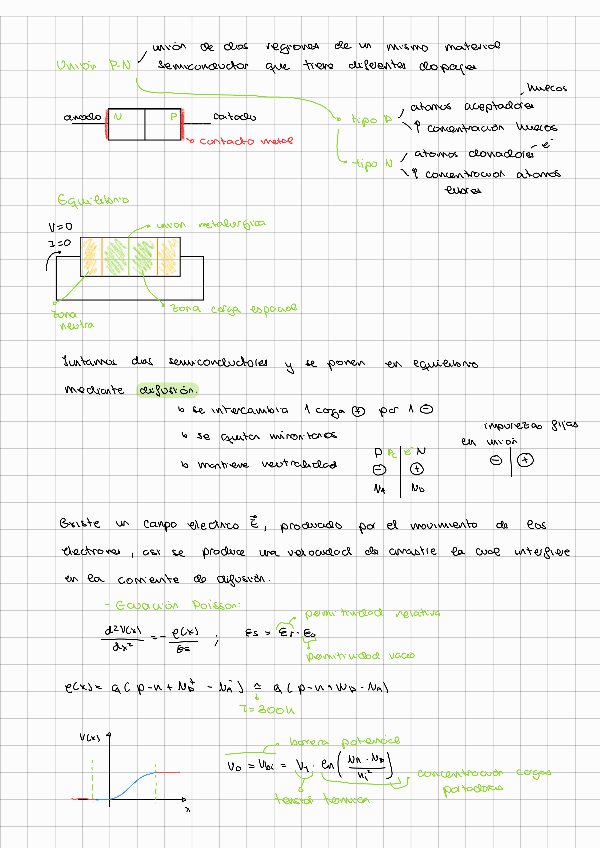 unión de dos regiones de un mismo material
Unión PN semiconductor que tiene diferentes dopajes
huecos
ánodo N P cátodo
contacto metal
tipo P
átomos aceptadores
↑ concentración huecos
tipo N
átomos donadores e⁻
↑ concentración átomos
libres
Equilibrio
V=0
I=0
unión metalúrgica
zona
neutra
zona carga espacial
Juntamos dos semiconductores y se ponen en equilibrio
mediante difusión.
↳ se intercambia 1 carga ⊕ por 1 ⊖
↳ se quitan minoritarios
↳ mantiene neutralidad
P e⁻ N
⊖ ⊕
NA ND
impurezas fijas
en unión
⊖ ⊕
Existe un campo eléctrico E, producido por el movimiento de los
electrones, así se produce una velocidad de arrastre la cual interfiere
en la corriente de difusión.
- Ecuación Poisson:
permitividad relativa
d²V(x)/dx² = - ρ(x)/εs ; εs = εr · ε0
permitividad vacío
ρ(x) = q ( p - n + ND⁺ - NA⁻ ) ≃ q ( p - n + ND - NA )
T=300K
V(x)
x
barrera potencial
V0 = Vbi = VT · ln ( NA · ND / ni² )
tensión térmica
concentración cargas
portadores